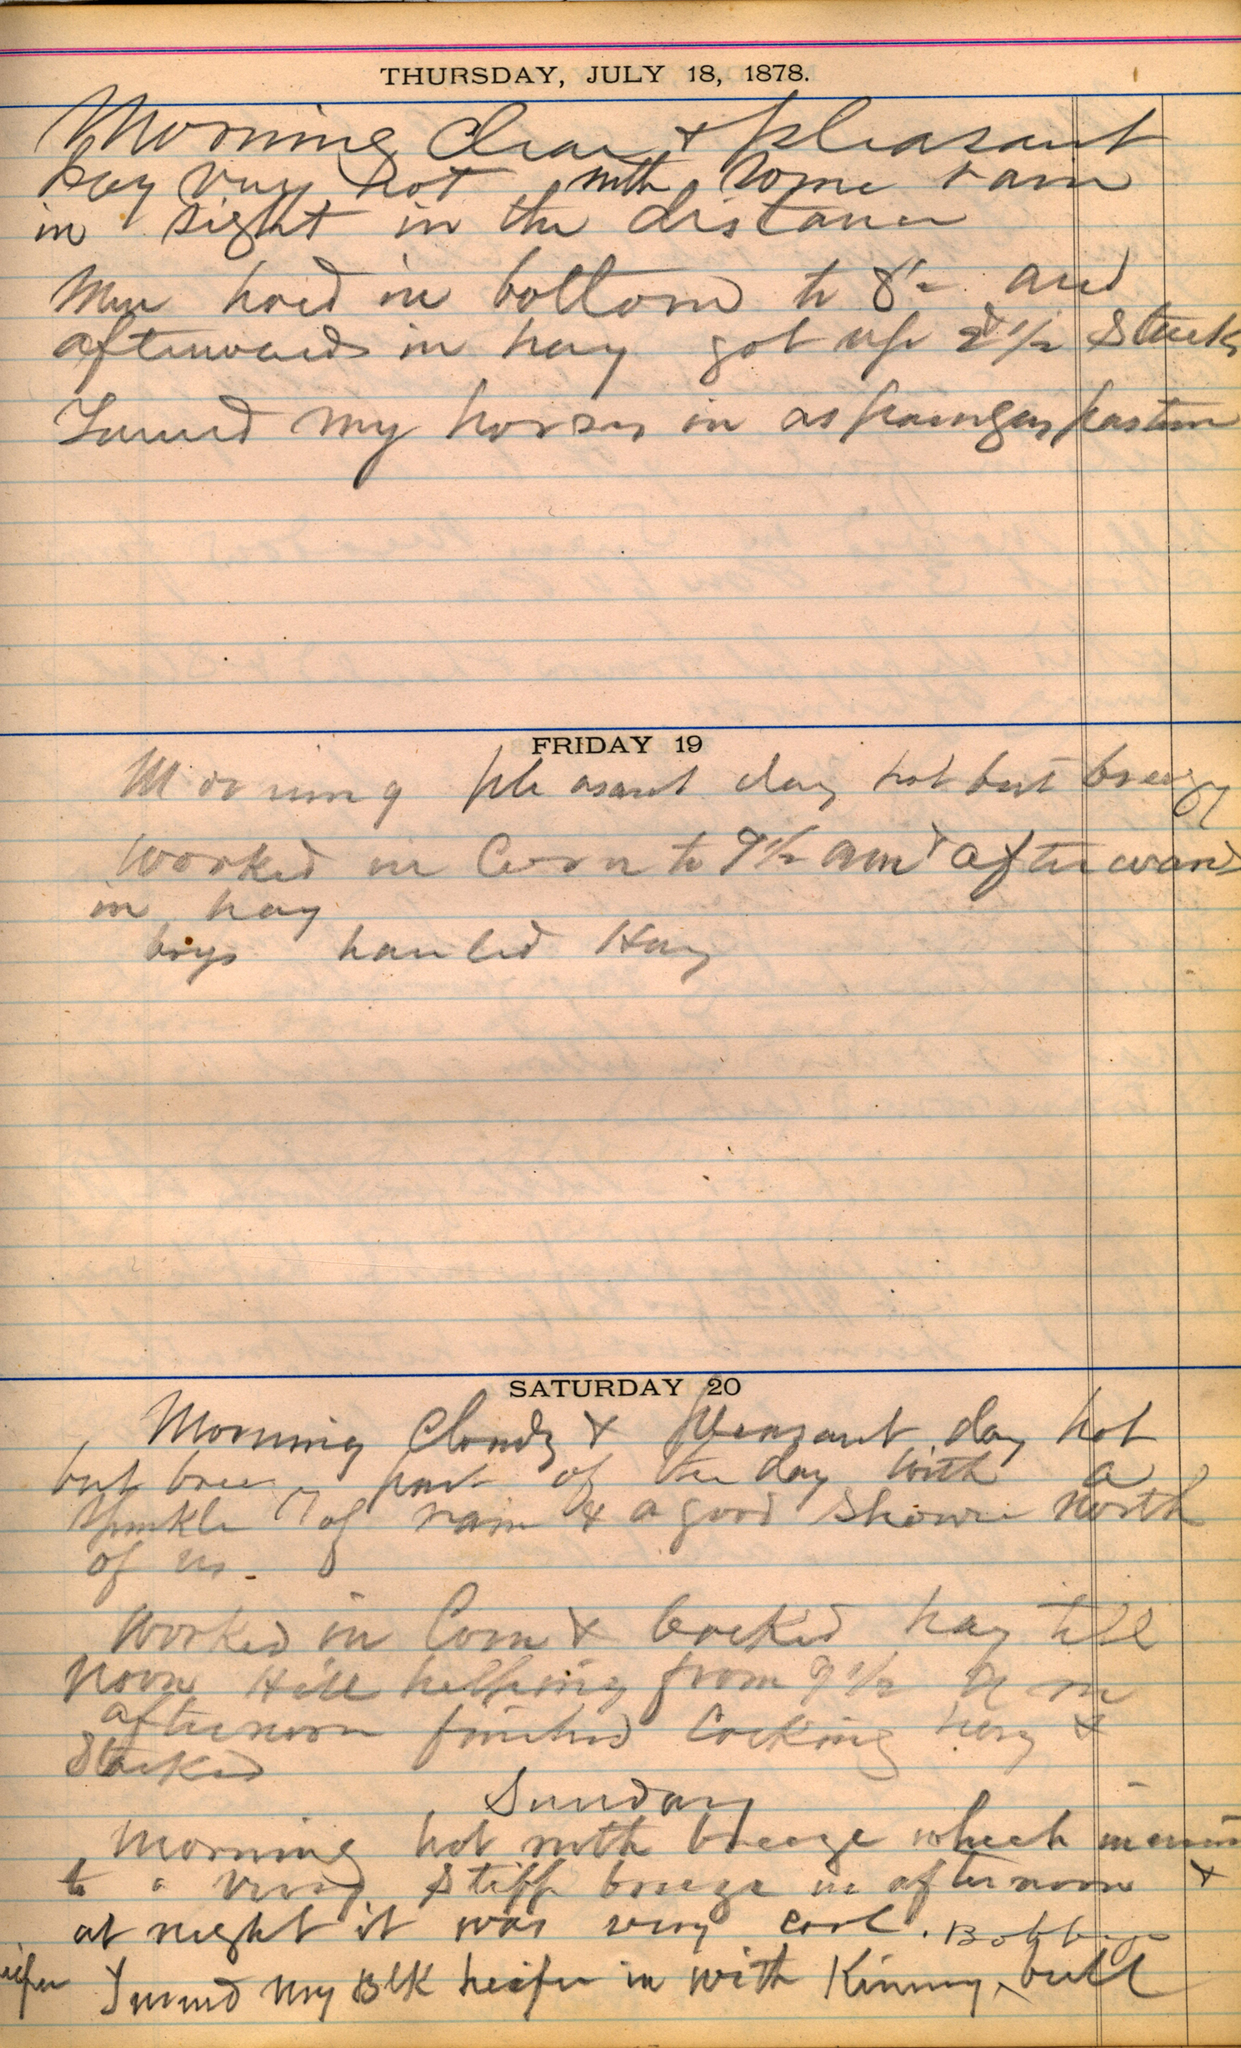 THURSDAY, JULY 18, 1878.
Morning Clear & pleasant
day very hot with some rain
in sight in the distance
Men hoed in bottom to 8½ and
afterwards in hay got up 2½ Stacks
Turned my horses in pasture
FRIDAY 19
Morning pleasant day hot but breezy
Worked in Corn to 9½ am & afterwards
in hay
boys hauled Hay
SATURDAY 20
Morning Cloudy & pleasant day hot
but breezy part of the day with a
sprinkle of rain & a good shower North
of us.
Worked in Corn & Cocked hay till
Noon Hill helping from 9½ a m
afternoon finished Cocking hay &
Stacked
Sunday
Morning hot with breeze which
to a very Stiff breeze in afternoon &
at night it was very cool.
Turned my Blk heifer in with Kinney bull